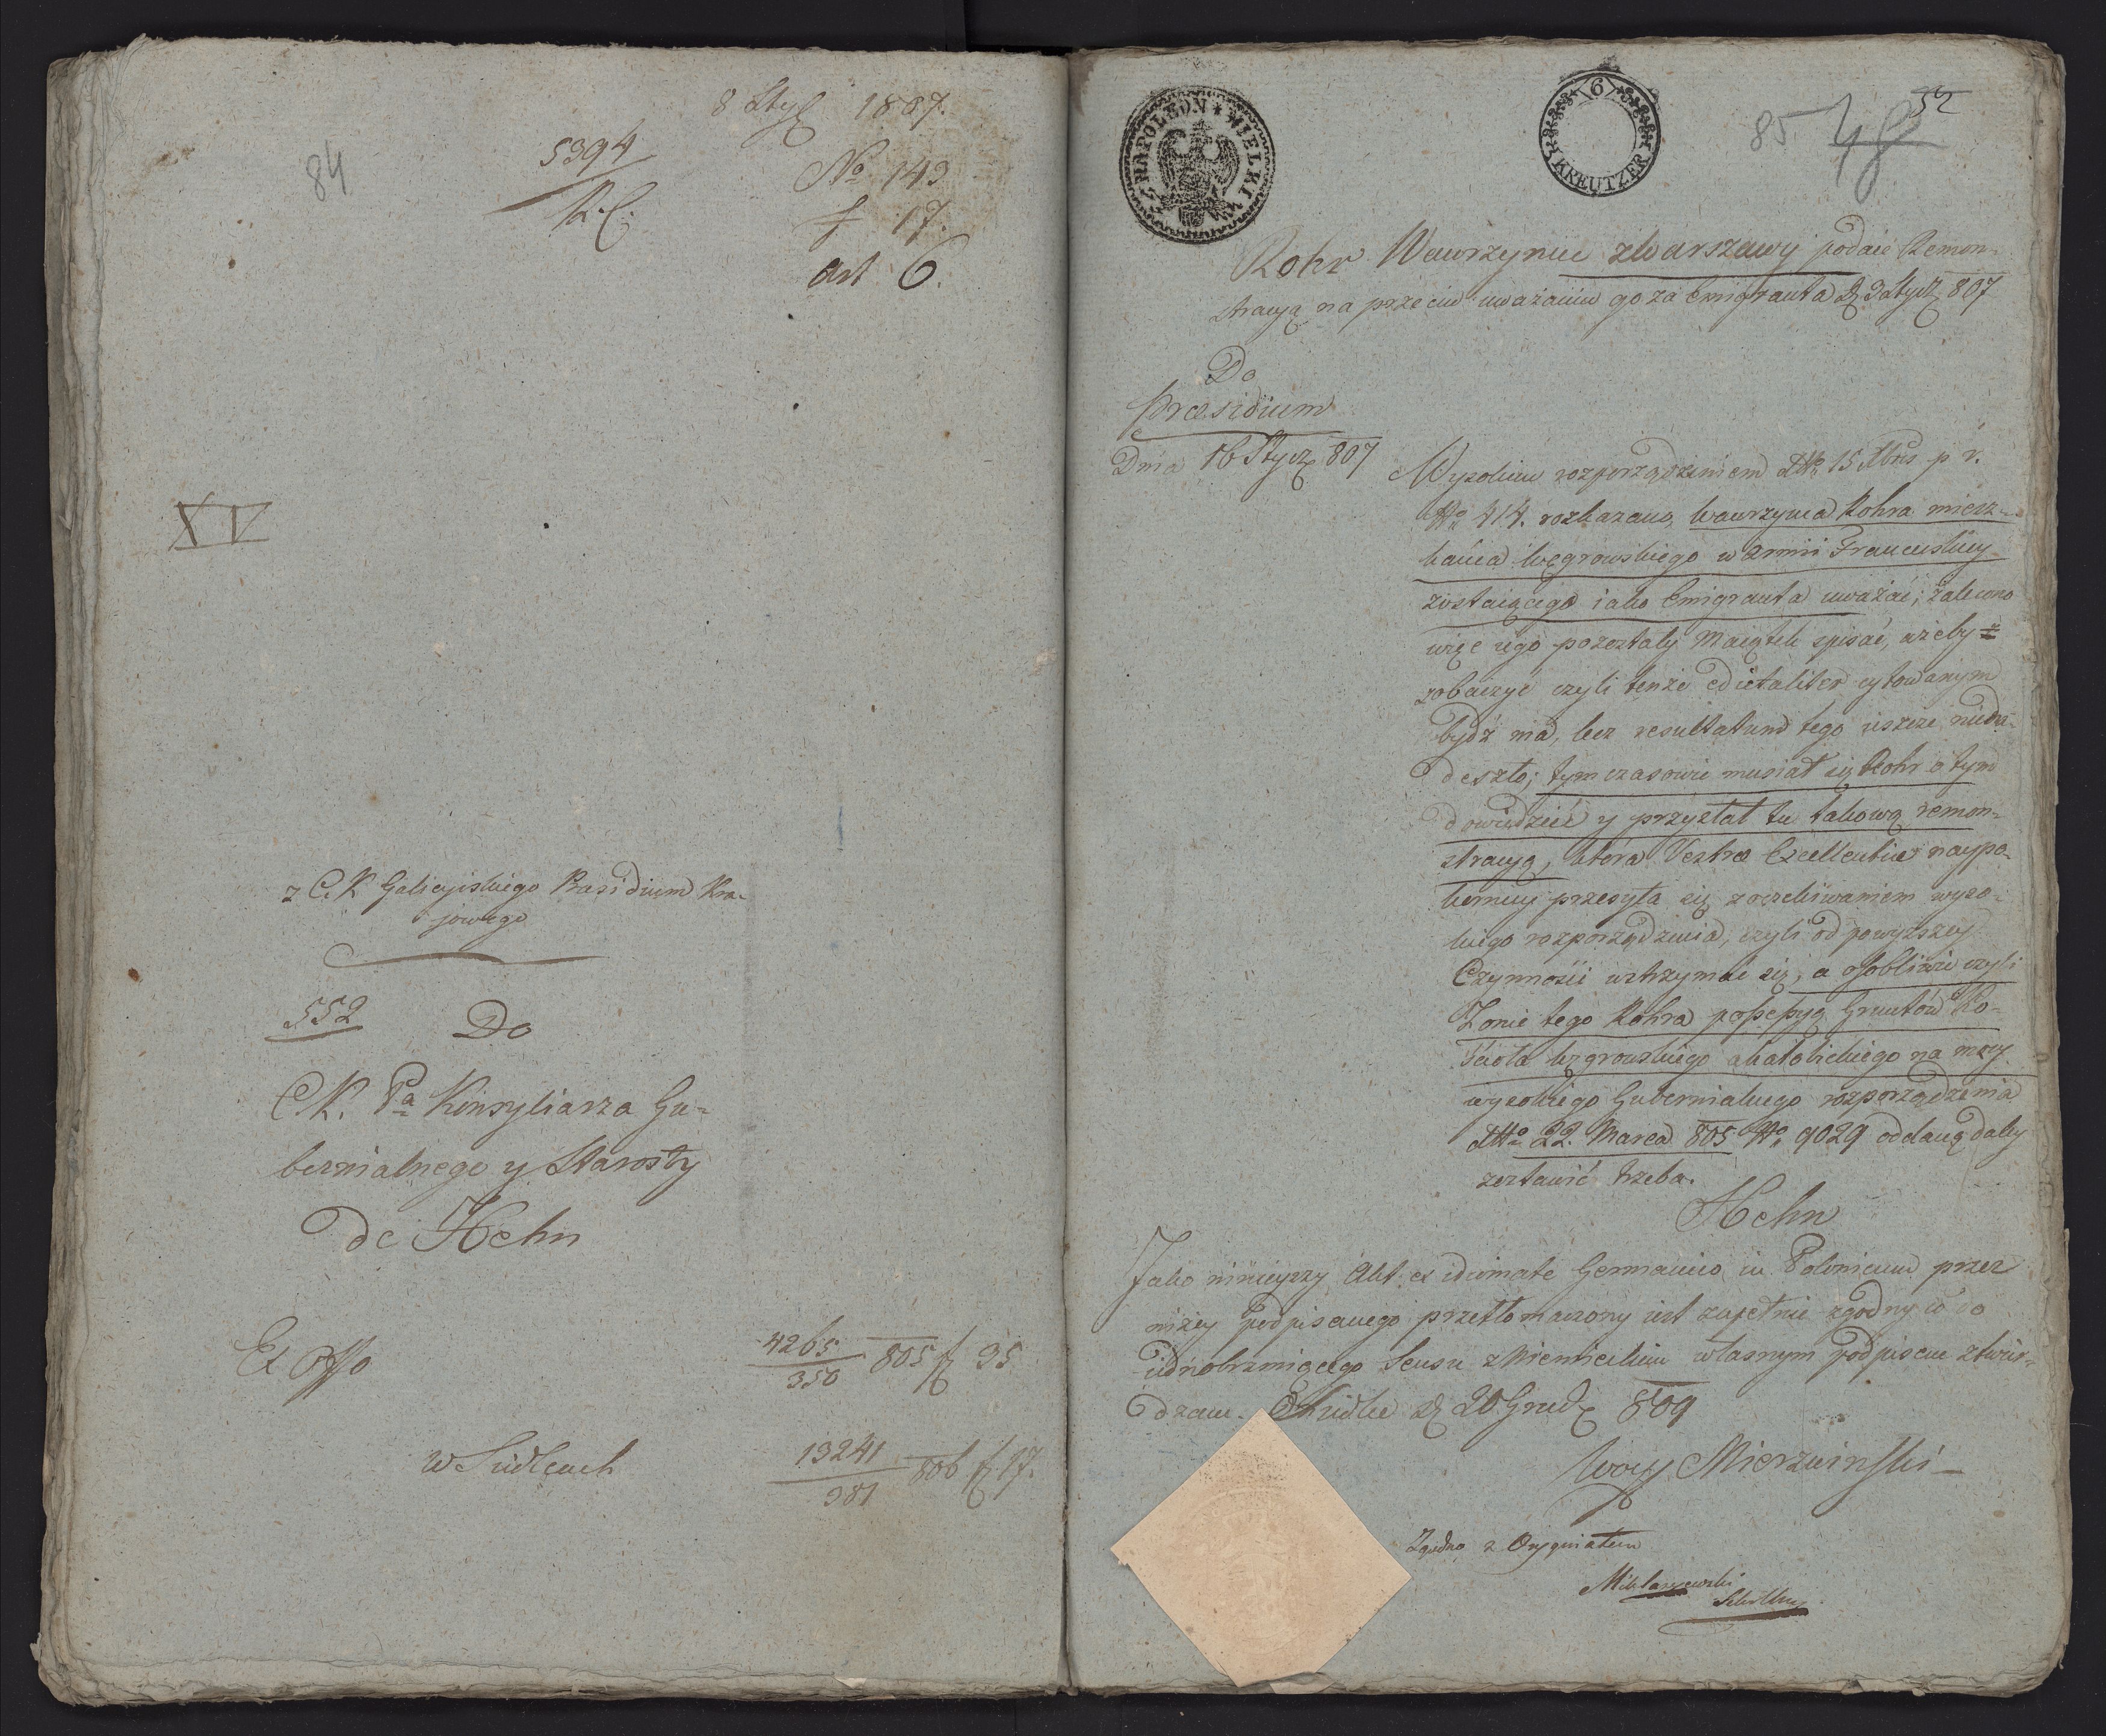 84
5394
K. C.
8 Stycz 1807.
No 143
f 17.
art 6.
XV
z C. K. Galicyiskiego Praesidium Kra-
jowego
552
Do
C. K. Pa Konsyliarza Gu-
bernialnego y Starosty
de Hehn
Ex Offo
w Siedlcach
4265
350 805 f 35
13241
381 806 f 17.
NAPOLEON WIELKI
6
KREUTZER
85 52
Rohr Wawrzyniec z Warszawy podaie Remon-
stracyą na przeciw uważaniu go za Emigranta d 3 Stycz 807
Do
Praesidium
Dnia 16 Stycz 807
Wysokim rozporządzeniem dtto 15 Xbris p. r.
No 414. rozkazano, Wawrzyńca Rohra miesz-
kańca Węgrowskiego w armii Francuskiey
zostaiącego iako Emigranta uważać; zalecono
więc iego pozostały Maiątek spisać, ażeby
zobaczyć czyli tenże edictaliter cytowanym
bydź ma, lecz resultatum tego ieszcze niedo-
deszło; tymczasowie musiał się Rohr o tym
dowiedzieć y przysłał tu takową remon-
stracyą, która Vestrae Excellentiae naypo-
korniey przesyła się z oczekiwaniem wyso-
kiego rozporządzenia, czyli od powyższey
Czynności wstrzymać się, a osobliwie czyli
Zonie tego Rohra possessyą Gruntów Ko-
ścioła Węgrowskiego akatolickiego na mocy
wysokiego Gubernialnego rozporządzenia
dtto 22. Marca 805 No 9029 oddaną daley
zostawić trzeba.
Hehn
Jako ninieyszy Akt ex idiomate Germanico in Polonicum przez
niżey podpisanego przetłomaczony iest zupełnie zgodny co do
iednobrzmiącego Sensu z Niemieckim własnym podpisem ztwier-
dzam. Siedlce d 20 Grud 809
Woy Mierzwinski
Zgodno z Oryginałem
Miklaszewski